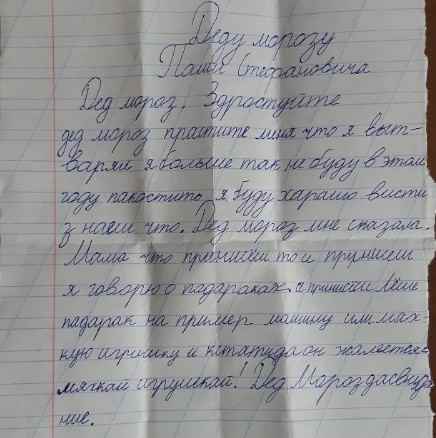 Деду морозу
Павла Стефановича
Дед мороз. Здростуйте
дед мороз праштите миня что я выт-
варял я больше так не буду в этам
году пакостить я буду харашо висти
з наем что. Дед мороз мне сказала.
Мама что принисёш то и прунисёш
я говорю о падараках. и принисеш Мене
падарак на пример машину или мях-
кую игрушку и кстати да он жалеется
мягкай игрушкай! Дед Мороз дасвида
ние.